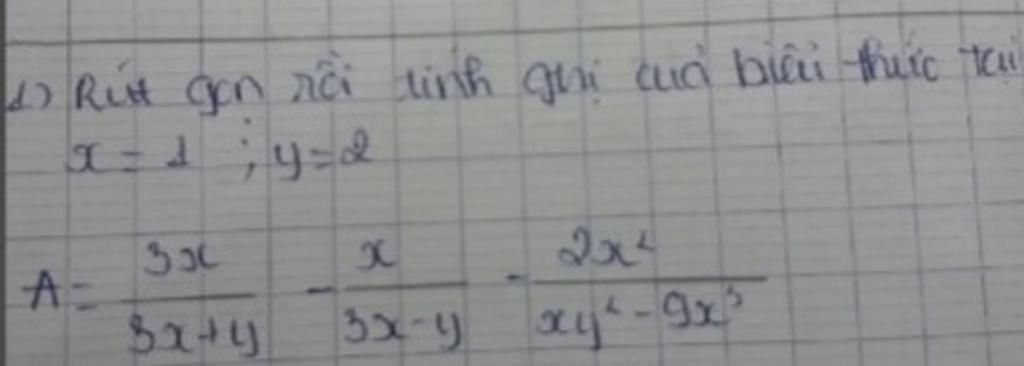 1) Rút gọn rồi tính giá trị của biểu thức tại
x = 1 ; y = 2
A = 3x/(3x+y) - x/(3x-y) - 2x²/(xy²-9x³)